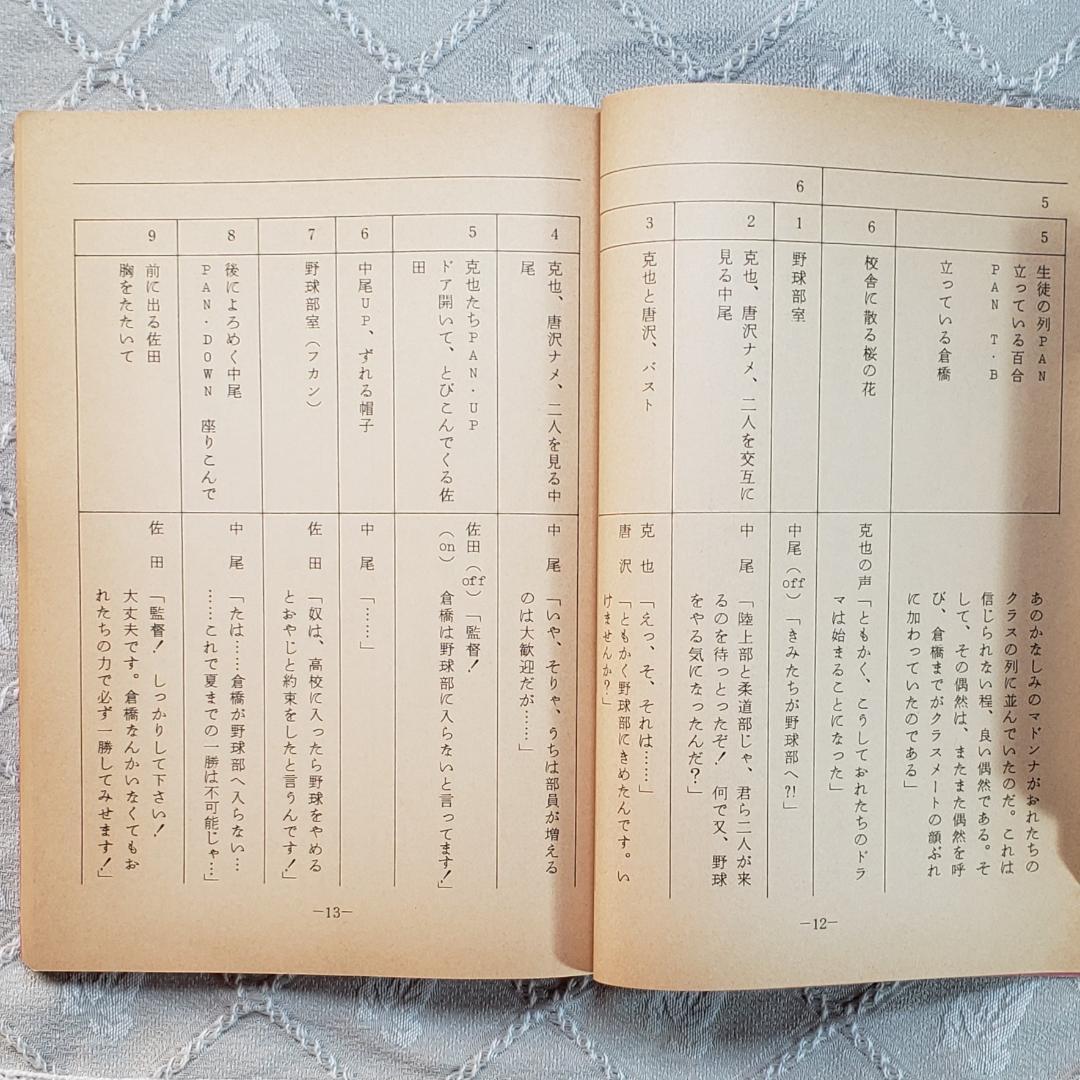 5
5
生徒の列PAN
立っている百合
PAN T・B
立っている倉橋
あのかなしみのマドンナがおれたちの
クラスの列に並んでいたのだ。これは
信じられない程、良い偶然である。そ
して、その偶然は、またまた偶然を呼
び、倉橋までがクラスメートの顔ぶれ
に加わっていたのである」
6
校舎に散る桜の花
克也の声「ともかく、こうしておれたちのドラ
マは始まることになった」
6
1
野球部室
中尾（off）「きみたちが野球部へ?!」
2
克也、唐沢ナメ、二人を交互に
見る中尾
中尾「陸上部と柔道部じゃ、君ら二人が来
るのを待っとったぞ！　何で又、野球
をやる気になったんだ？」
3
克也と唐沢、バスト
克也「えっ、そ、それは……」
唐沢「ともかく野球部にきめたんです。い
けませんか？」
—12—
4
克也、唐沢ナメ、二人を見る中
尾
中尾「いや、そりゃ、うちは部員が増える
のは大歓迎だが……」
5
克也たちPAN・UP
ドア開いて、とびこんでくる佐
田
佐田（off）「監督！
（on）倉橋は野球部に入らないと言ってます！」
6
中尾UP、ずれる帽子
中尾「……」
7
野球部室（フカン）
佐田「奴は、高校に入ったら野球をやめる
とおやじと約束をしたと言うんです！」
8
後によろめく中尾
PAN・DOWN　座りこんで
中尾「たは……倉橋が野球部へ入らない…
……これで夏までの一勝は不可能じゃ…」
9
前に出る佐田
胸をたたいて
佐田「監督！　しっかりして下さい！
大丈夫です。倉橋なんかいなくてもお
れたちの力で必ず一勝してみせます！」
—13—